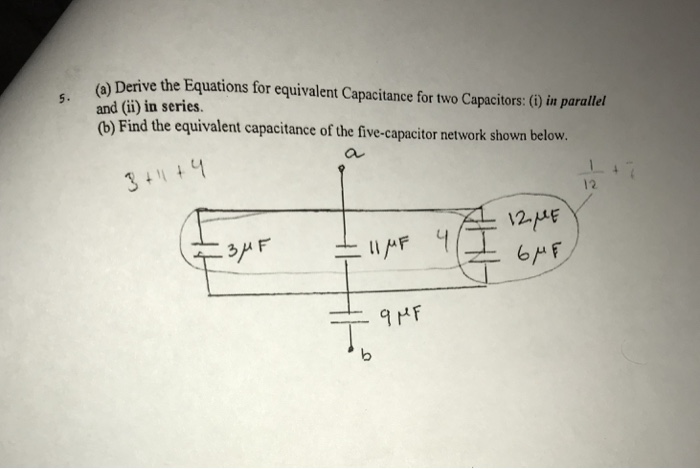 5. (a) Derive the Equations for equivalent Capacitance for two Capacitors: (i) in parallel
and (ii) in series.
(b) Find the equivalent capacitance of the five-capacitor network shown below.
a
3 + 11 + 4
1/12 +
12 μF
3 μF
11 μF
4
6 μF
9 μF
b